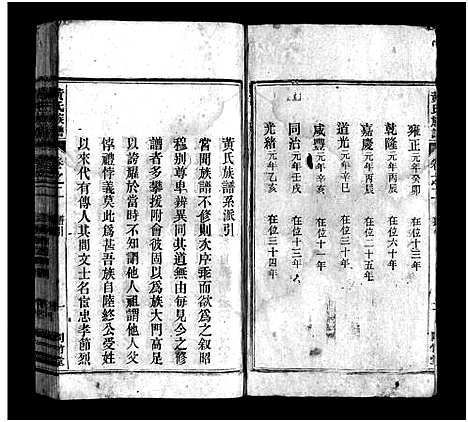 雍正元年癸卯 在位十三年
乾隆元年丙辰 在位六十年
嘉慶元年丙辰 在位二十五年
道光元年辛巳 在位三十年
咸豐元年辛亥 在位十一年
同治元年壬戌 在位十三年
光緒元年乙亥 在位三十四年
黃氏族譜
黃氏族譜系派引
嘗聞族譜不修則次序乖而欲為之叙昭
穆别尊卑辨異同其道無由每見今之修
譜者多攀援附會彼固以為族大門高足
以誇耀於當時不知謂他人祖謂他人父
悖禮悖義莫此為甚吾族自陸終公受姓
以來代有傳人其間文士名宦忠孝節烈
黃氏族譜